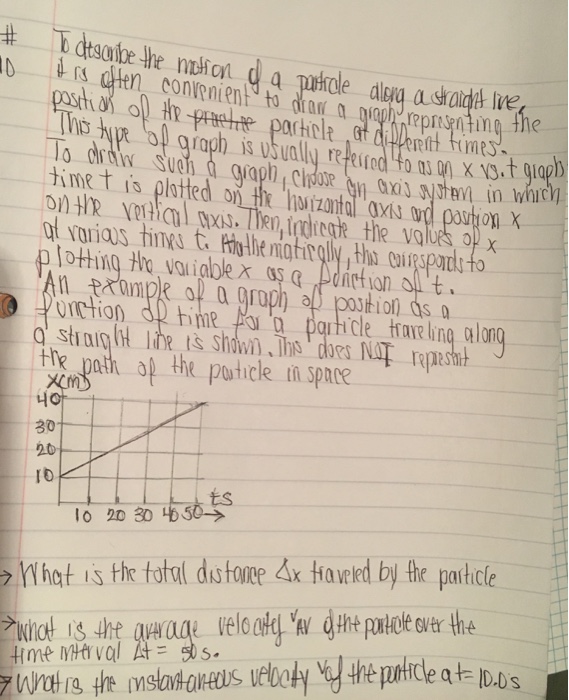 # To describe the motion of a particle along a straight line,
10 it is often convenient to draw a graph representing the
position of the practice particle at different times.
This type of graph is usually referred to as an x vs. t graph
To draw such a graph, choose an axis system in which
time t is plotted on the horizontal axis and position x
on the vertical axis. Then, indicate the values of x
at various times t. Mathematically, this corresponds to
plotting the variable x as a function of t.
An example of a graph of position as a
function of time for a particle traveling along
a straight line is shown. This does NOT represent
the path of the particle in space
x(m)
40
30
20
10
10 20 30 40 50 → ts
→ What is the total distance Δx traveled by the particle
→ what is the average velocity vAV of the particle over the
time interval Δt = 50s.
→ What is the instantaneous velocity v of the particle at t= 10.0s